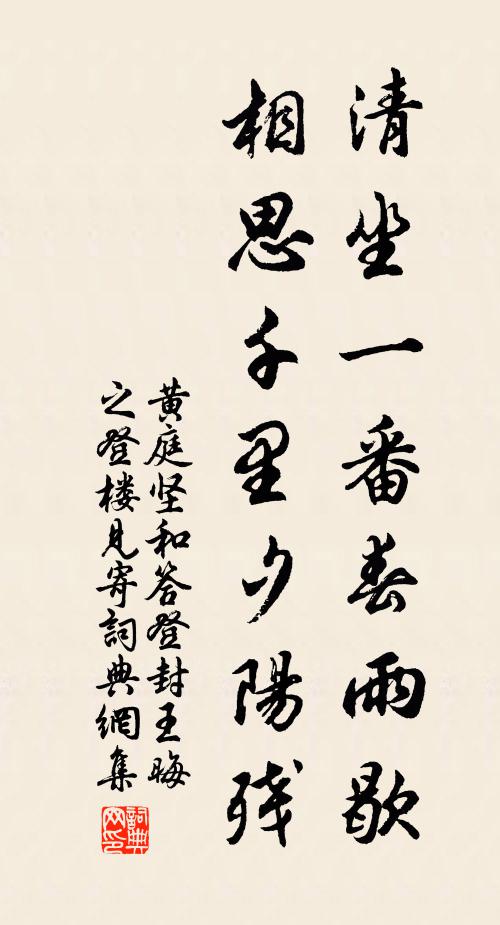 清坐一番春雨歇
相思千里夕陽残
黄庭坚和答登封王晦
之登楼見寄詞典網集
詞典
网印